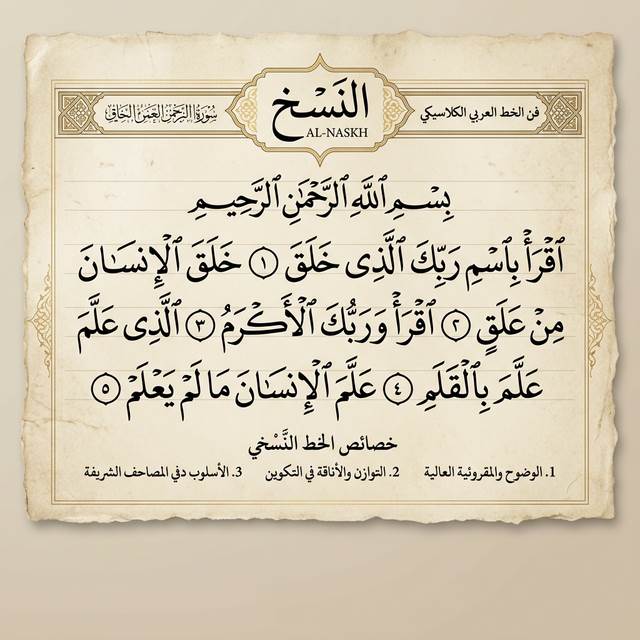 النَسْخ
AL-NASKH
فن الخط العربي الكلاسيكي
سُورَةُ الرَّحْمٰنِ
بِسْمِ ٱللَّهِ ٱلرَّحْمَٰنِ ٱلرَّحِيمِ
ٱقْرَأْ بِٱسْمِ رَبِّكَ ٱلَّذِى خَلَقَ ۝١ خَلَقَ ٱلْإِنسَـٰنَ
مِنْ عَلَقٍ ۝٢ ٱقْرَأْ وَرَبُّكَ ٱلْأَكْرَمُ ۝٣ ٱلَّذِى عَلَّمَ
عَلَّمَ بِٱلْقَلَمِ ۝٤ عَلَّمَ ٱلْإِنسَـٰنَ مَا لَمْ يَعْلَمْ ۝٥
خصائص الخط النَّسْخي
1. الوضوح والمقروئية العالية 2. التوازن والأناقة في التكوين 3. الأسلوب دفي المصاحف الشريفة